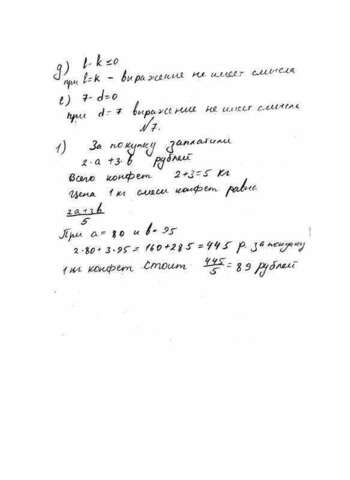 д) l - k ≤ 0
при l = k - выражение не имеет смысла
е) 7 - d = 0
при d = 7 выражение не имеет смысла
№7.
1) За покупку заплатили
2·a + 3·b рублей
Всего конфет 2+3=5 кг
Цена 1 кг смеси конфет равна
2a+3b
5
При a = 80 и b = 95
2·80 + 3·95 = 160 + 285 = 445 р. за покупку
1 кг конфет стоит 445/5 = 89 рублей